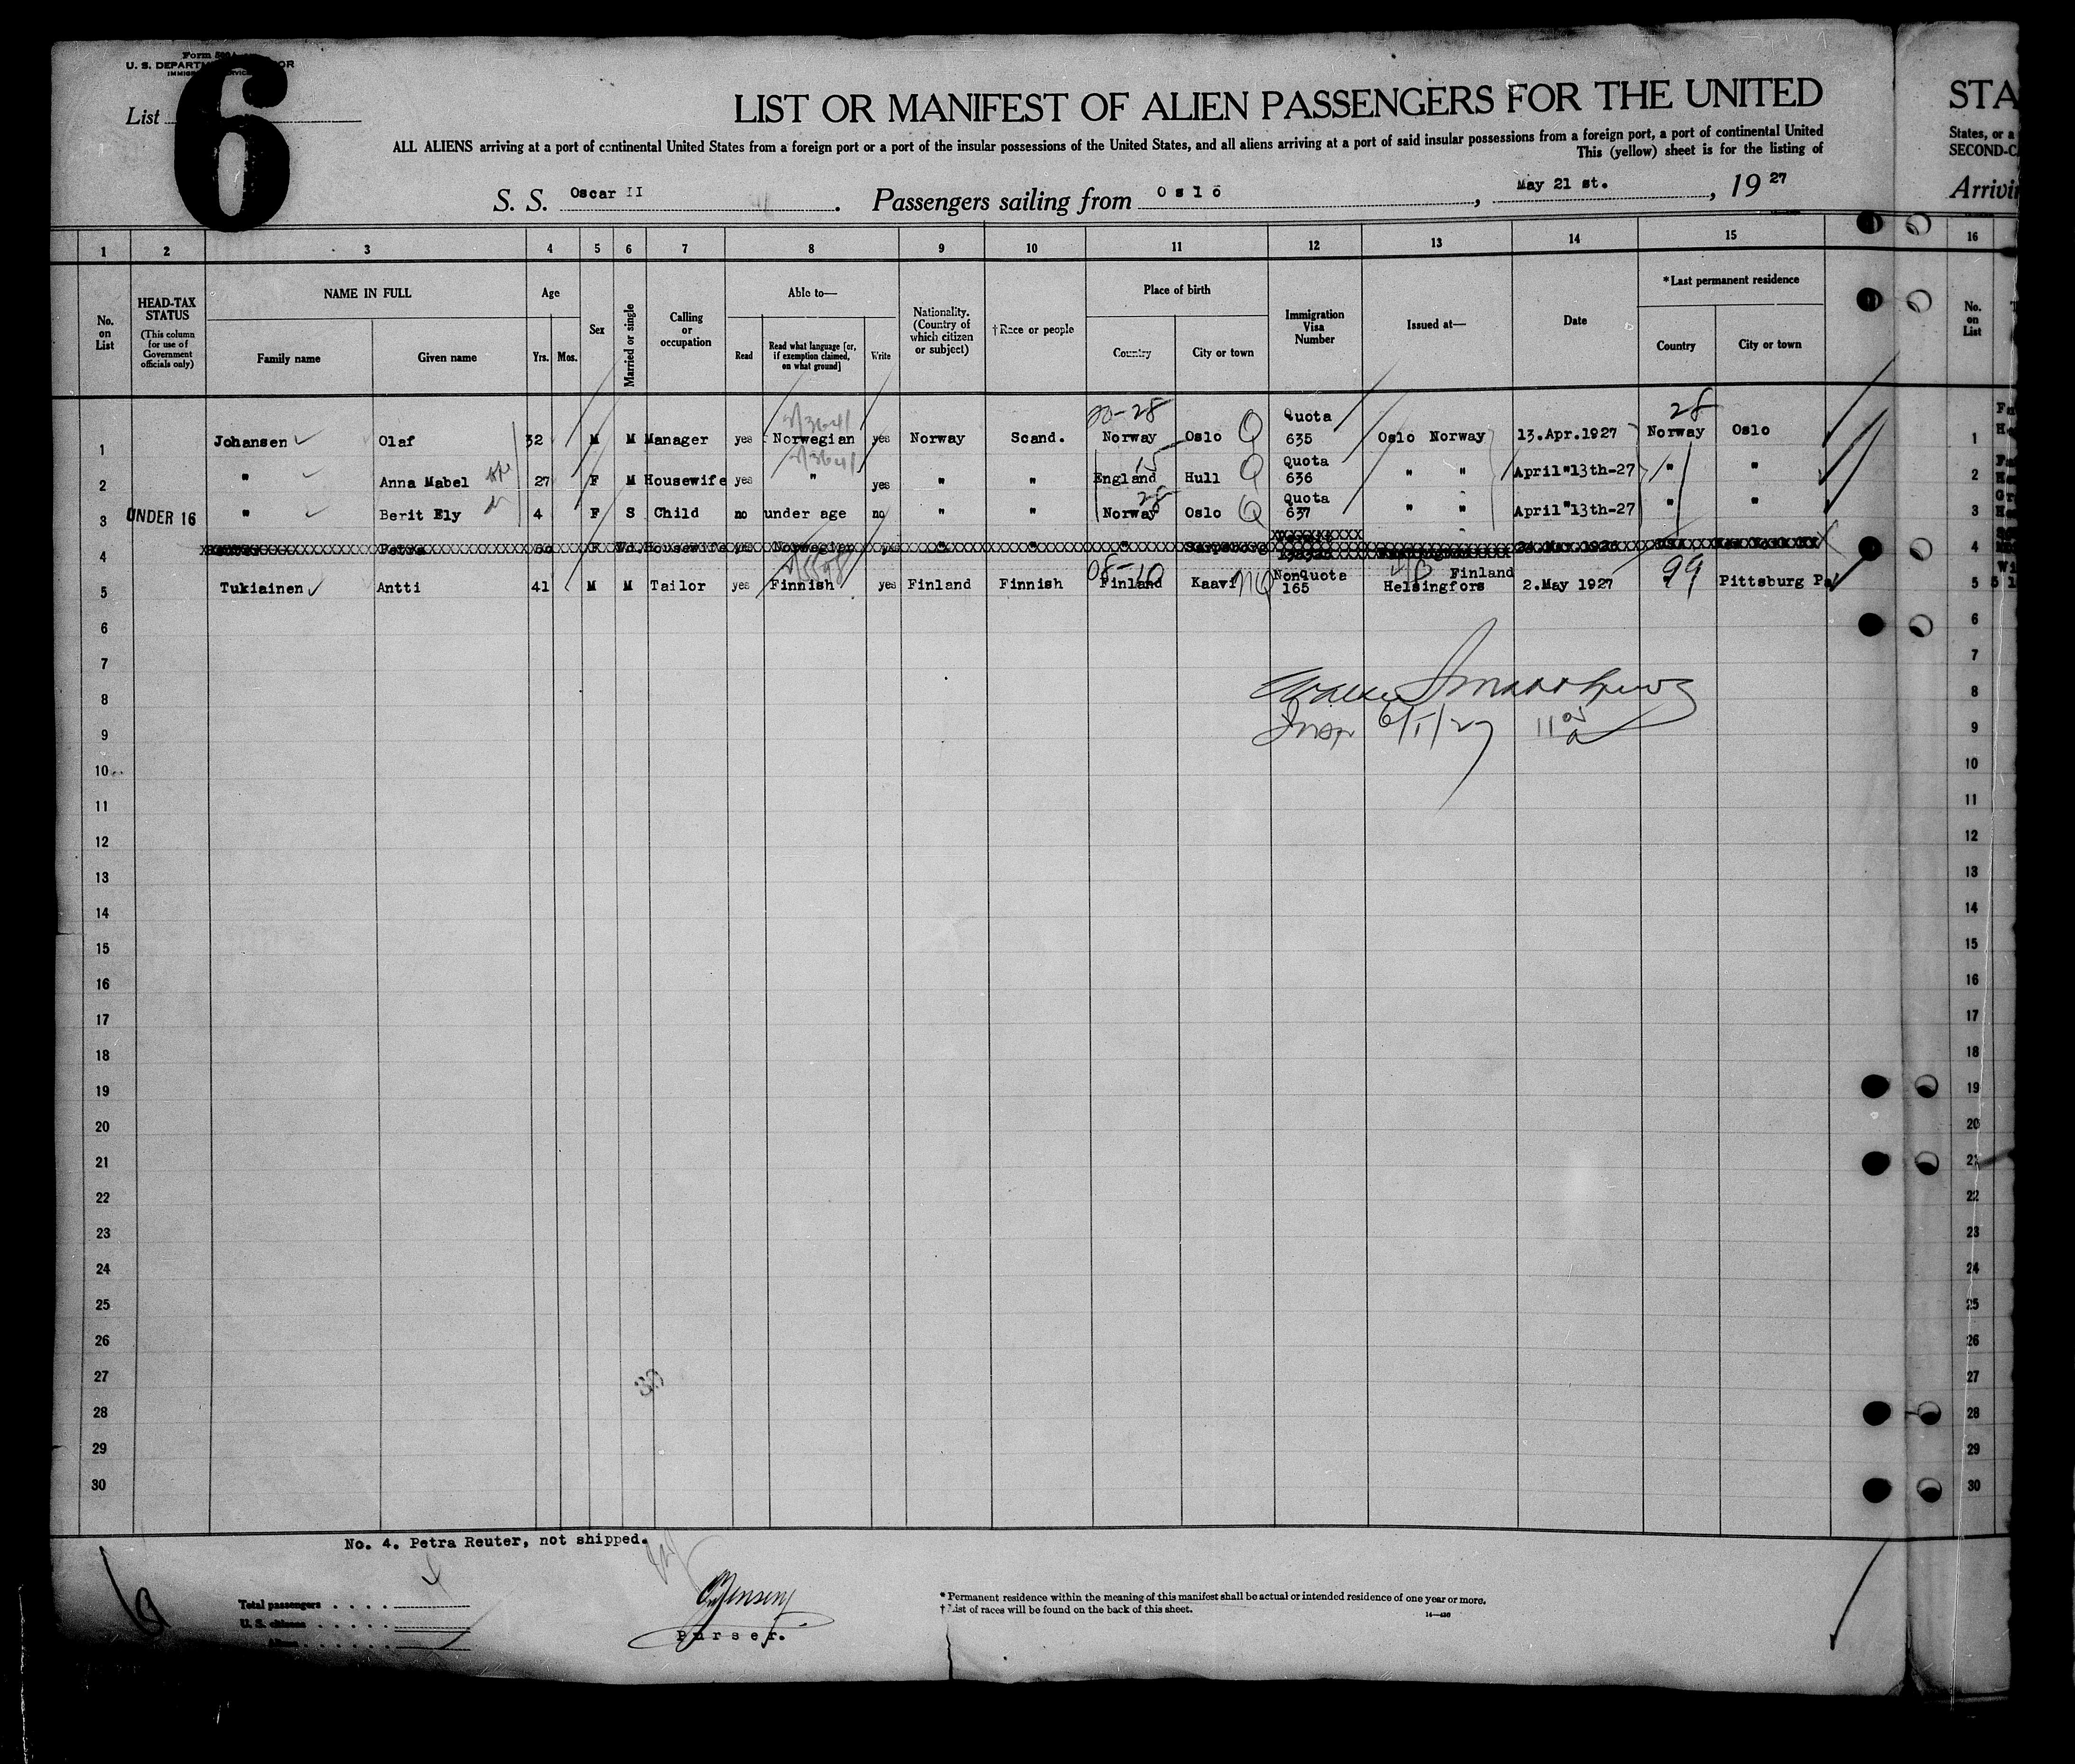 Form 500A
U. S. DEPARTMENT OF LABOR
IMMIGRATION SERVICE
List 6
LIST OR MANIFEST OF ALIEN PASSENGERS FOR THE UNITED
STA
ALL ALIENS arriving at a port of continental United States from a foreign port or a port of the insular possessions of the United States, and all aliens arriving at a port of said insular possessions from a foreign port, a port of continental United
States, or a
This (yellow) sheet is for the listing of
SECOND-C
S. S. Oscar II. Passengers sailing from Oslo, May 21 st., 19 27
Arrivin
1 2 3 4 5 6 7 8 9 10 11 12 13 14 15 16
No. on List
HEAD-TAX STATUS
(This column for use of Government officials only)
NAME IN FULL
Family name
Given name
Age
Yrs. Mos.
Sex
Married or single
Calling or occupation
Able to—
Read
Read what language [or, if exemption claimed, on what ground]
Write
Nationality. (Country of which citizen or subject)
†Race or people
Place of birth
Country
City or town
Immigration Visa Number
Issued at—
Date
*Last permanent residence
Country
City or town
No. on List
20-28 28
1 Johansen Olaf 32 M M Manager yes Norwegian yes Norway Scand. Norway Oslo Q Quota 635 Oslo Norway 13.Apr.1927 Norway Oslo 1
15
2 " Anna Mabel 27 F M Housewife yes " yes " " England Hull Q Quota 636 " " April"13th-27 " " 2
28
3 UNDER 16 " Berit Ely 4 F S Child no under age no " " Norway Oslo Q Quota 637 " " April"13th-27 " " 3
4 Petra F Wd. Housewife yes Norwegian yes " " " Sarpsborg 4
08-10 99
5 Tukiainen Antti 41 M M Tailor yes Finnish yes Finland Finnish Finland Kaavi NQ NonQuota 165 Finland Helsingfors 2.May 1927 " Pittsburg Pa 5
6 6
7 7
8 8
9 9
Insp 6/1/27 11 00 a
10 10
11 11
12 12
13 13
14 14
15 15
16 16
17 17
18 18
19 19
20 20
21 21
22 22
23 23
24 24
25 25
26 26
27 27
28 28
29 29
30 30
No. 4. Petra Reuter, not shipped.
Total passengers
U. S. citizens
Aliens
Jensen
Purser.
* Permanent residence within the meaning of this manifest shall be actual or intended residence of one year or more.
† List of races will be found on the back of this sheet.